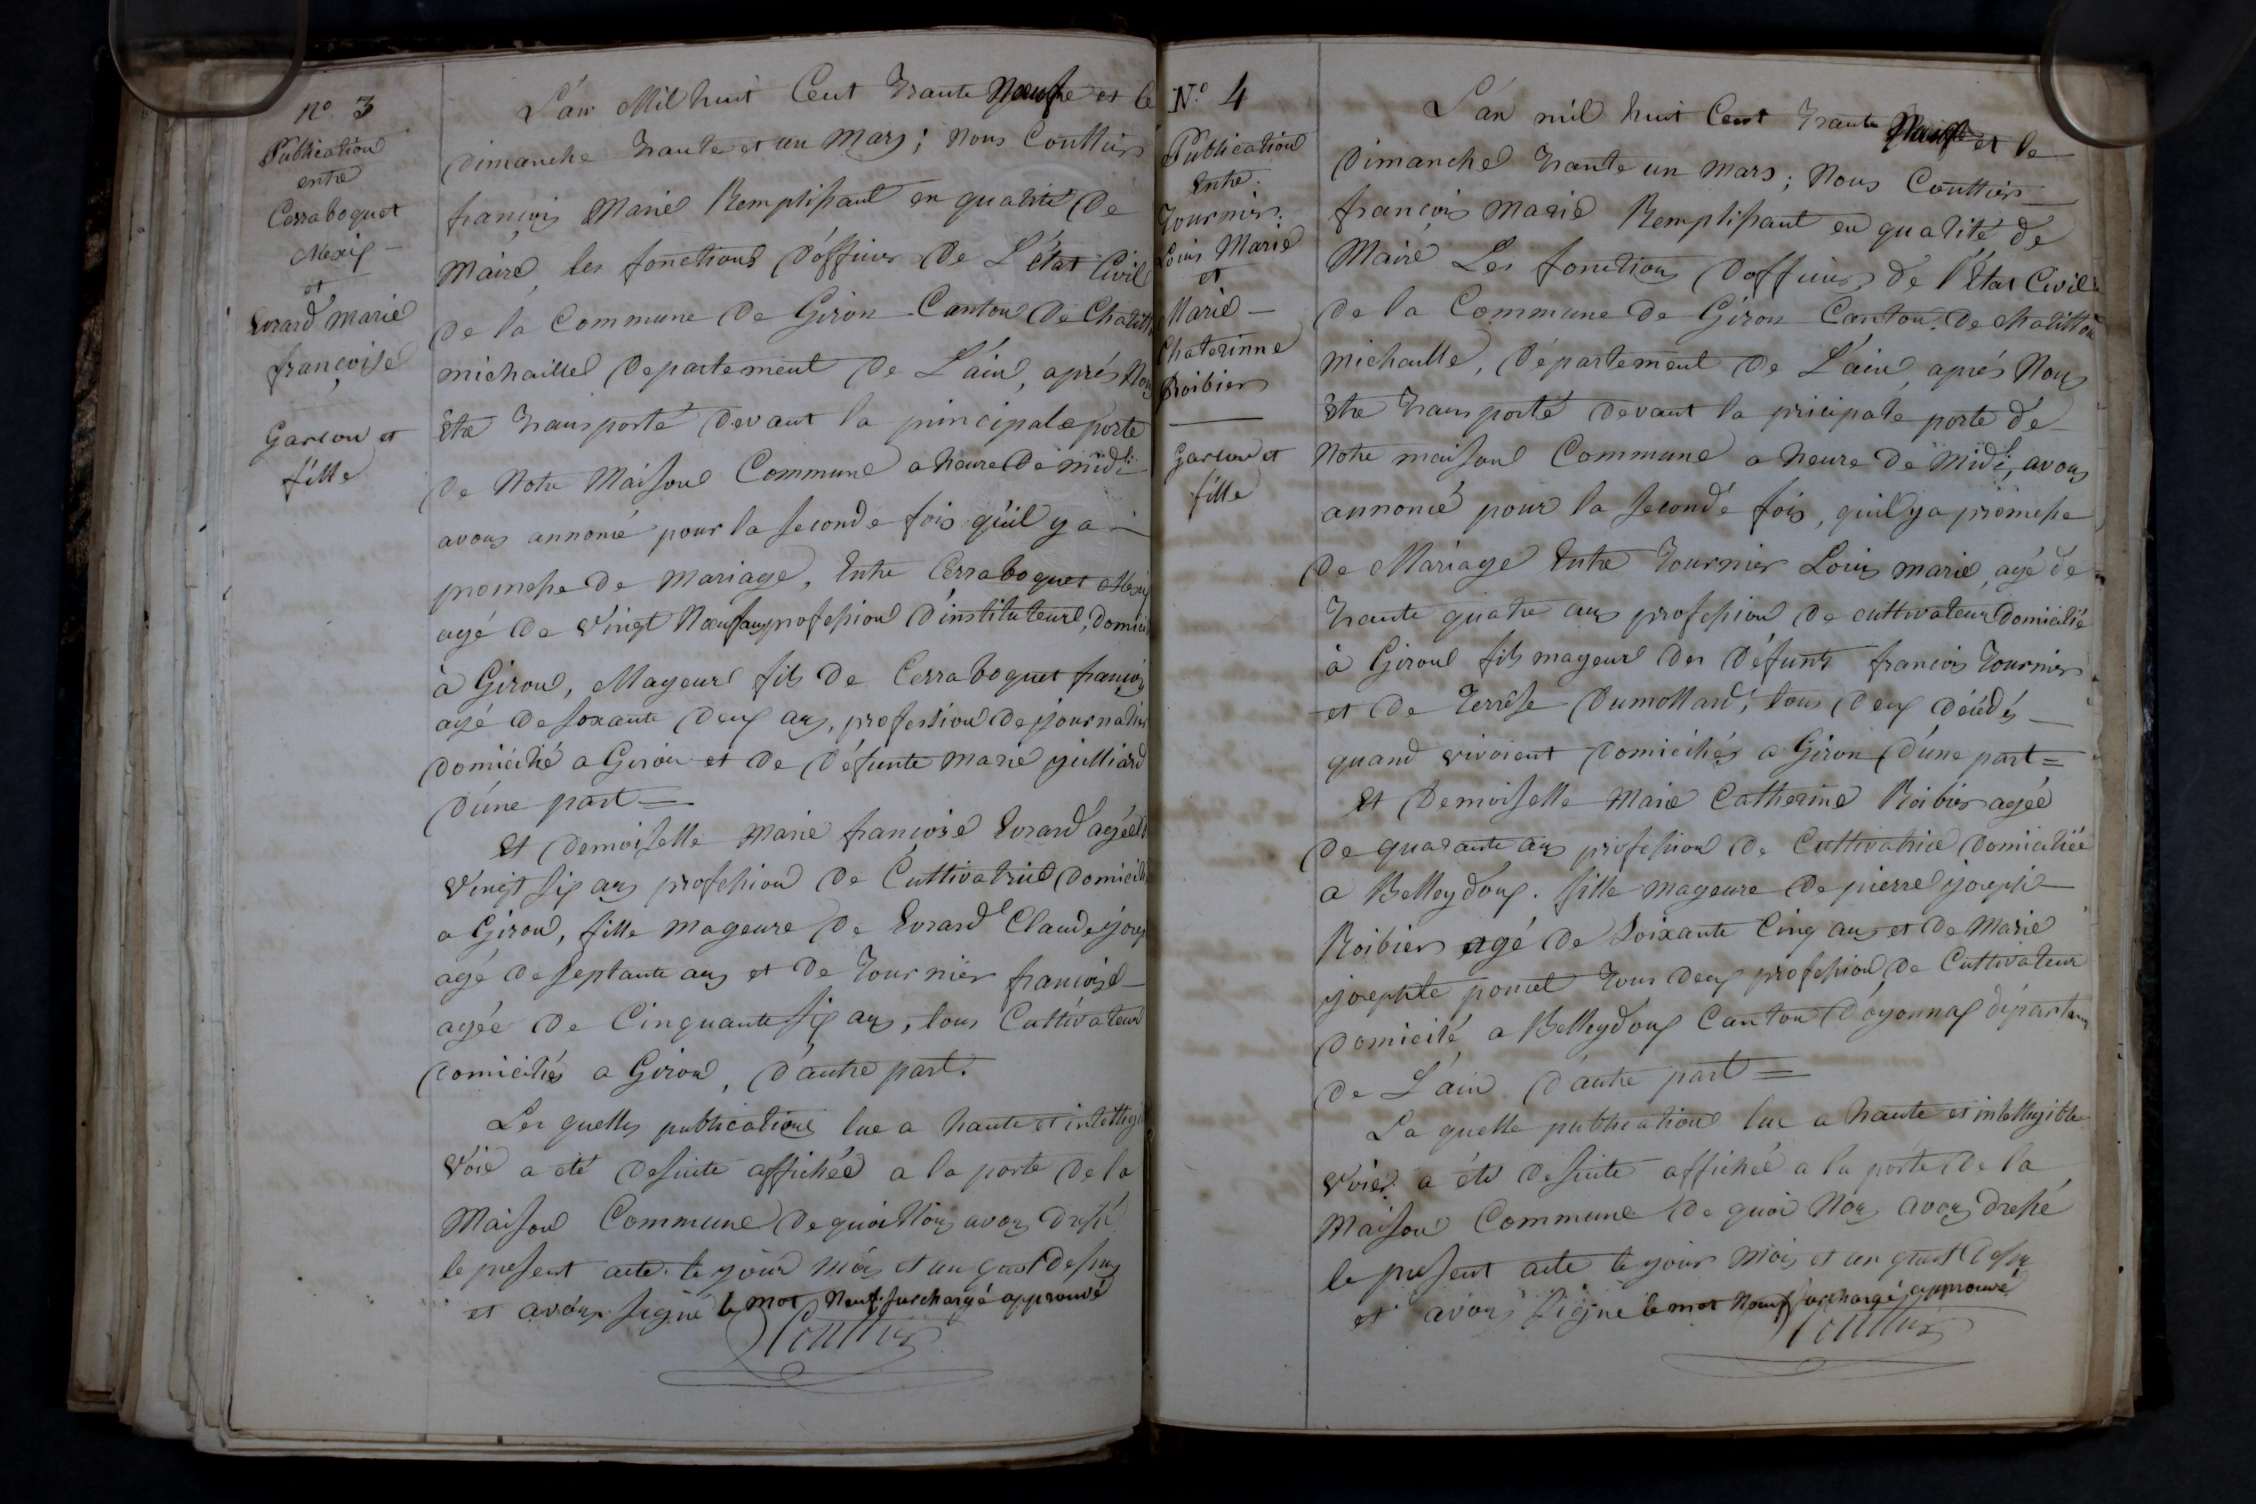 No 3
Publication
entre
Cerraboquet
Alexis
et
Evrard Marie
françoise
Garcon et
fille
L'an Mil huit Cent trante Neuf et le
Dimanche trante et un Mars; Nous Couttier
françois Marie Remplissant en qualité De
Maire, les fonctions D'officier De L'état Civil
De la Commune De Giron Canton De Chatill
michaille Departement De L'ain, aprés Nous
Etre transporté Devant la principale porte
De Notre Maison Commune a heure De midi
avons annoncé pour la seconde fois qu'il y a
promesse De Mariage, Entre Cerraboquet Alexis
agé De Vingt Neuf ans profession D'instituteur, Domici
à Giron, Mageur fils De Cerraboquet françois
agé De soxante Deux ans, profession De journalier
Domicilié a Giron et De Défunte Marie julliard
D'une part =
Et Demoiselle Marie françoise Evrard agée D
Vingt six ans profession De Cultivatrice Domicili
a Giron, fille Mageure De Evrard Claude josep
agé De septante ans et De Tournier françoise
agée De Cinquante six ans, tous Cultivateur
Domiciliés a Giron, D'autre part.
Les quelles publications lue a haute et intelligi
Voie a été Desuite affichée a la porte De la
Maison Commune De quoi Nous avons Dressé
le present acte le jour Mois et an que Dessus
et avons signé le mot Neuf surchargé approuvé
Couttier
No 4
Publication
Entre
Tournier
Louis Marie
et
Marie
Chaterinne
Roibier
Garcon et
fille
L'an mil huit Cent trante Neuf et le
Dimanche trante un Mars; Nous Couttier
françois Marie Remplissant en qualité de
Maire Les fonctions D'officier de l'Etat Civil
De la Commune De Giron Canton De Chatillon
michaille, Département De L'ain, aprés Nous
Etre transporté Devant la pricipale porte de
Notre maison Commune a heure De Midi, avons
annoncé pour la seconde fois, quil y a promesse
De Mariage Entre Tournier Louis marie, agé de
trante quatre ans profession De cultivateur Domicilié
à Giron fils mageur Des Défunts françois Tournier
et De Terrèse Dumollard, tous Deux Décédés
quand vivoient Domiciliés a Giron D'une part =
Et Demoiselle Marie Catherine Roibier agée
De quarante ans profession De Cultivatrice Domiciliée
a Belleydoux. fille mageure De pierre joseph
Roibier agé De Soixante Cinq ans et De Marie
josephte poncet tous Deux profession De Cultivateur
Domicilé a Belleydoux Canton D'oyonnax départem
De L'ain D'autre part =
La quelle publication lue a haute et intelligible
Voie a été Desuite affichée a la porte De la
Maison Commune De quoi Nous avons Dressé
le present acte le jour Mois et an que Dessus
et avons Signé le mot Neuf surchargé approuvé
Couttier